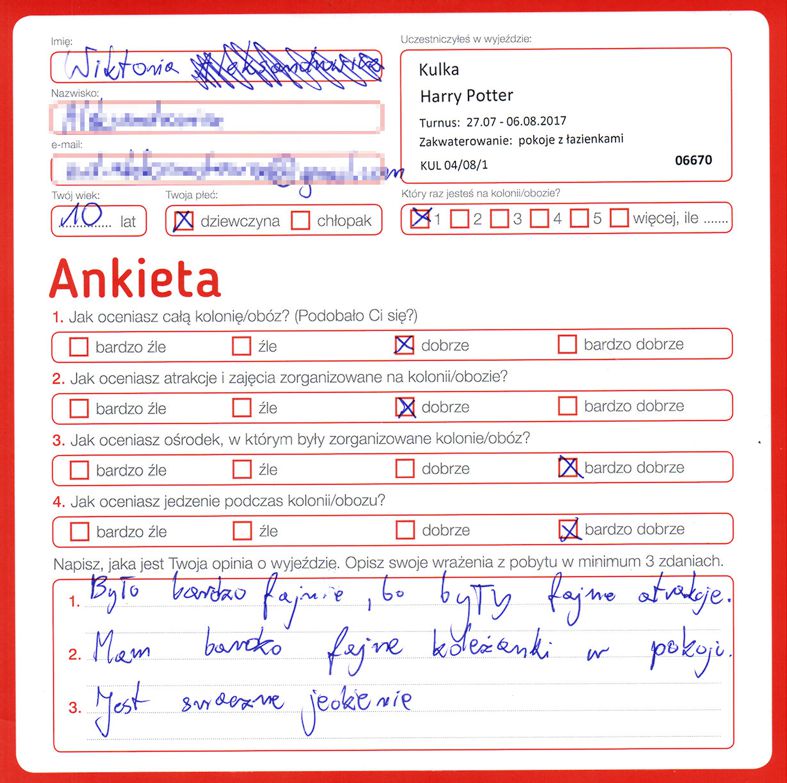 Imię:
Wiktoria
Uczestniczyłeś w wyjeździe:
Kulka
Harry Potter
Turnus: 27.07 - 06.08.2017
Zakwaterowanie: pokoje z łazienkami
KUL 04/08/1 06670
Nazwisko:
e-mail:
Twój wiek: Twoja płeć: Który raz jesteś na kolonii/obozie?
10 lat dziewczyna chłopak 1 2 3 4 5 więcej, ile .......
Ankieta
1. Jak oceniasz całą kolonię/obóz? (Podobało Ci się?)
bardzo źle źle dobrze bardzo dobrze
2. Jak oceniasz atrakcje i zajęcia zorganizowane na kolonii/obozie?
bardzo źle źle dobrze bardzo dobrze
3. Jak oceniasz ośrodek, w którym były zorganizowane kolonie/obóz?
bardzo źle źle dobrze bardzo dobrze
4. Jak oceniasz jedzenie podczas kolonii/obozu?
bardzo źle źle dobrze bardzo dobrze
Napisz, jaka jest Twoja opinia o wyjeździe. Opisz swoje wrażenia z pobytu w minimum 3 zdaniach.
1. Było bardzo fajnie, bo były fajne atrakcje.
2. Mam bardzo fajne koleżanki w pokoji.
3. Jest smaczne jedzenie